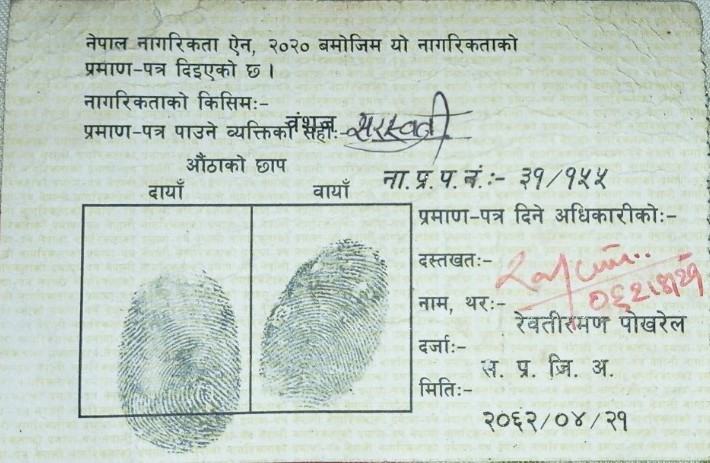 नेपाल नागरिकता ऐन, २०२० बमोजिम यो नागरिकताको
प्रमाण-पत्र दिइएको छ ।
नागरिकताको किसिम:-
वंशज
प्रमाण-पत्र पाउने व्यक्तिको सही:- सरस्वती
औंठाको छाप
दायाँ बायाँ
ना.प्र.प.नं.:- ३१/१५५
प्रमाण-पत्र दिने अधिकारीको:-
दस्तखत:-
नाम, थर:-
रेवतीरमण पोखरेल
दर्जा:-
स. प्र. जि. अ.
मिति:-
२०६२/०४/२१